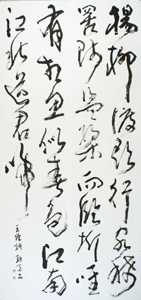 楊柳渡頭行客稀
罟師盪槳向臨圻唯
有相思似春色江南
江北送君歸
王維詩